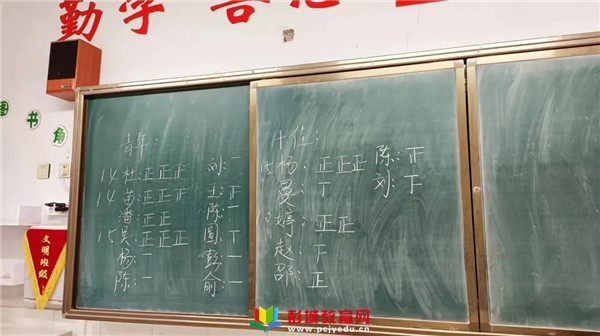 勤学
图书角
文明班级
青年:
14 杜:正正正
14 苗:正正正
潘:正正
15 吴:正正正
杨:一
陈:一
刘:一
王:正
陈:一
圆:丅
彭:一
俞:一
十佳:
15 杨:正正正
曼:丅
10 婷:正正
赵:下
邵:正
陈:正
刘:下
彭城教育网
www.pcjyedu.cn